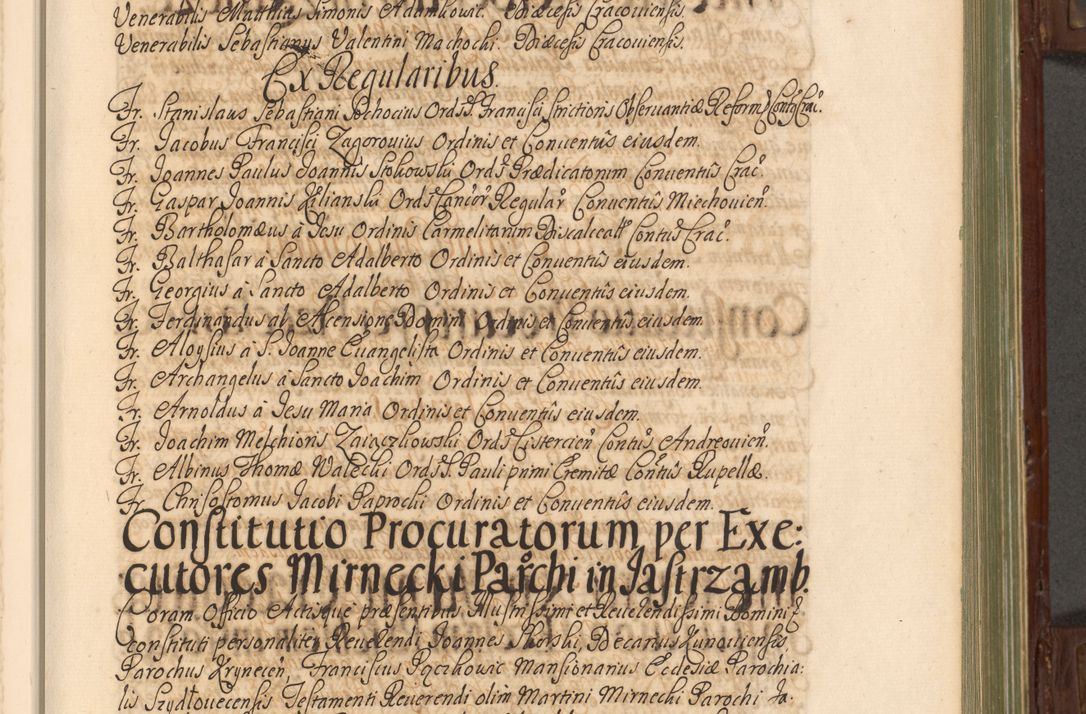 Venerabilis Matthias Simonis Adamkowic. Diæcesis Cracouiensis.
Venerabilis Sebastianus Valentini Machocki. Diæcesis Cracouiensis.
Ex Regularibus.
Fr. Stanislaus Sebastiani Sochocius Ord͠s S. Francisci strictioris Obseruantiæ Reform
Fr. Iacobus Francisci Zagorouius Ordinis et Conuentûs eiusdem.
Fr. Joannes Paulus Joannis Stokowski Ord͠s Prædicatorum Conuentûs Crac.
Fr. Gaspar Joannis Kilianski Ord͠s Regular Conuentûs Miechouien.
Fr. Bartholomæus à Iesu Ordinis Carmelitarum Discalceat Crac.
Fr. Balthasar à Sancto Adalberto Ordinis et Conuentûs eiusdem.
Fr. Georgius à Sancto Adalberto Ordinis et Conuentûs eiusdem.
Fr. Ferdinandus ab Ascensione Domini Ordinis et Conuentûs eiusdem
Fr. Aloysius à S. Joanne Euangelista Ordinis et Conuentûs eiusdem.
Fr. Archangelus à Sancto Joachim Ordinis et Conuentûs eiusdem.
Fr. Arnoldus à Iesu Maria Ordinis et Conuentûs eiusdem.
Fr. Joachim Melchioris Zaiączkowski Ord͠s Cistercien Contûs Andreouien.
Fr. Albinus Thomæ Walecki Ord͠s S. Pauli primi Eremitæ Contûs Rupellæ.
Fr. Chrisostomus Jacobi Paprocki Ordinis et Conuentûs eiusdem.
Constitutio Procuratorum per Exe:
cutores Mirnecki Parochi in Jastrzamb.
Coram Officio Actisque præsentibus Illustrissimi et Reuerendissimi Domini
constituti personaliter Reuerendi Joannes Skorski, Decanus Zunouiensis,
Parochus Krynecen, Franciscus Pączkowic Mansionarius Ecclesiæ Parochia:
lis Szydłouecensis Testamenti Reuerendi olim Martini Mirnecki Parochi Ja-